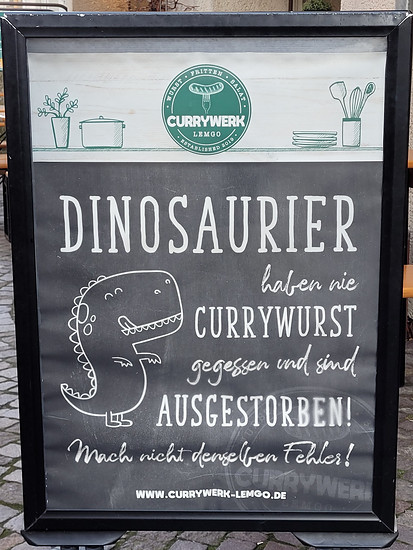 WURST • FRITTEN • SALAT
CURRYWERK
LEMGO
ESTABLISHED 2019
DINOSAURIER
haben nie
CURRYWURST
gegessen und sind
AUSGESTORBEN!
Mach nicht denselben Fehler!
CURRYWERK
WWW.CURRYWERK-LEMGO.DE